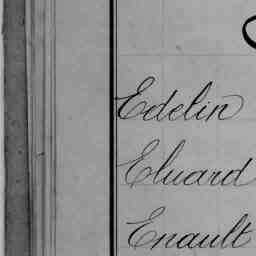 Edelin
Eluard
Enault